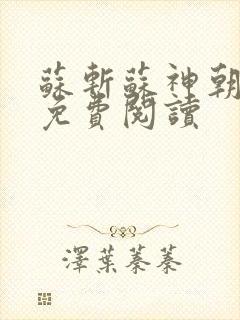 蘇斬蘇神朝
免費閱讀
澤葉蓁蓁